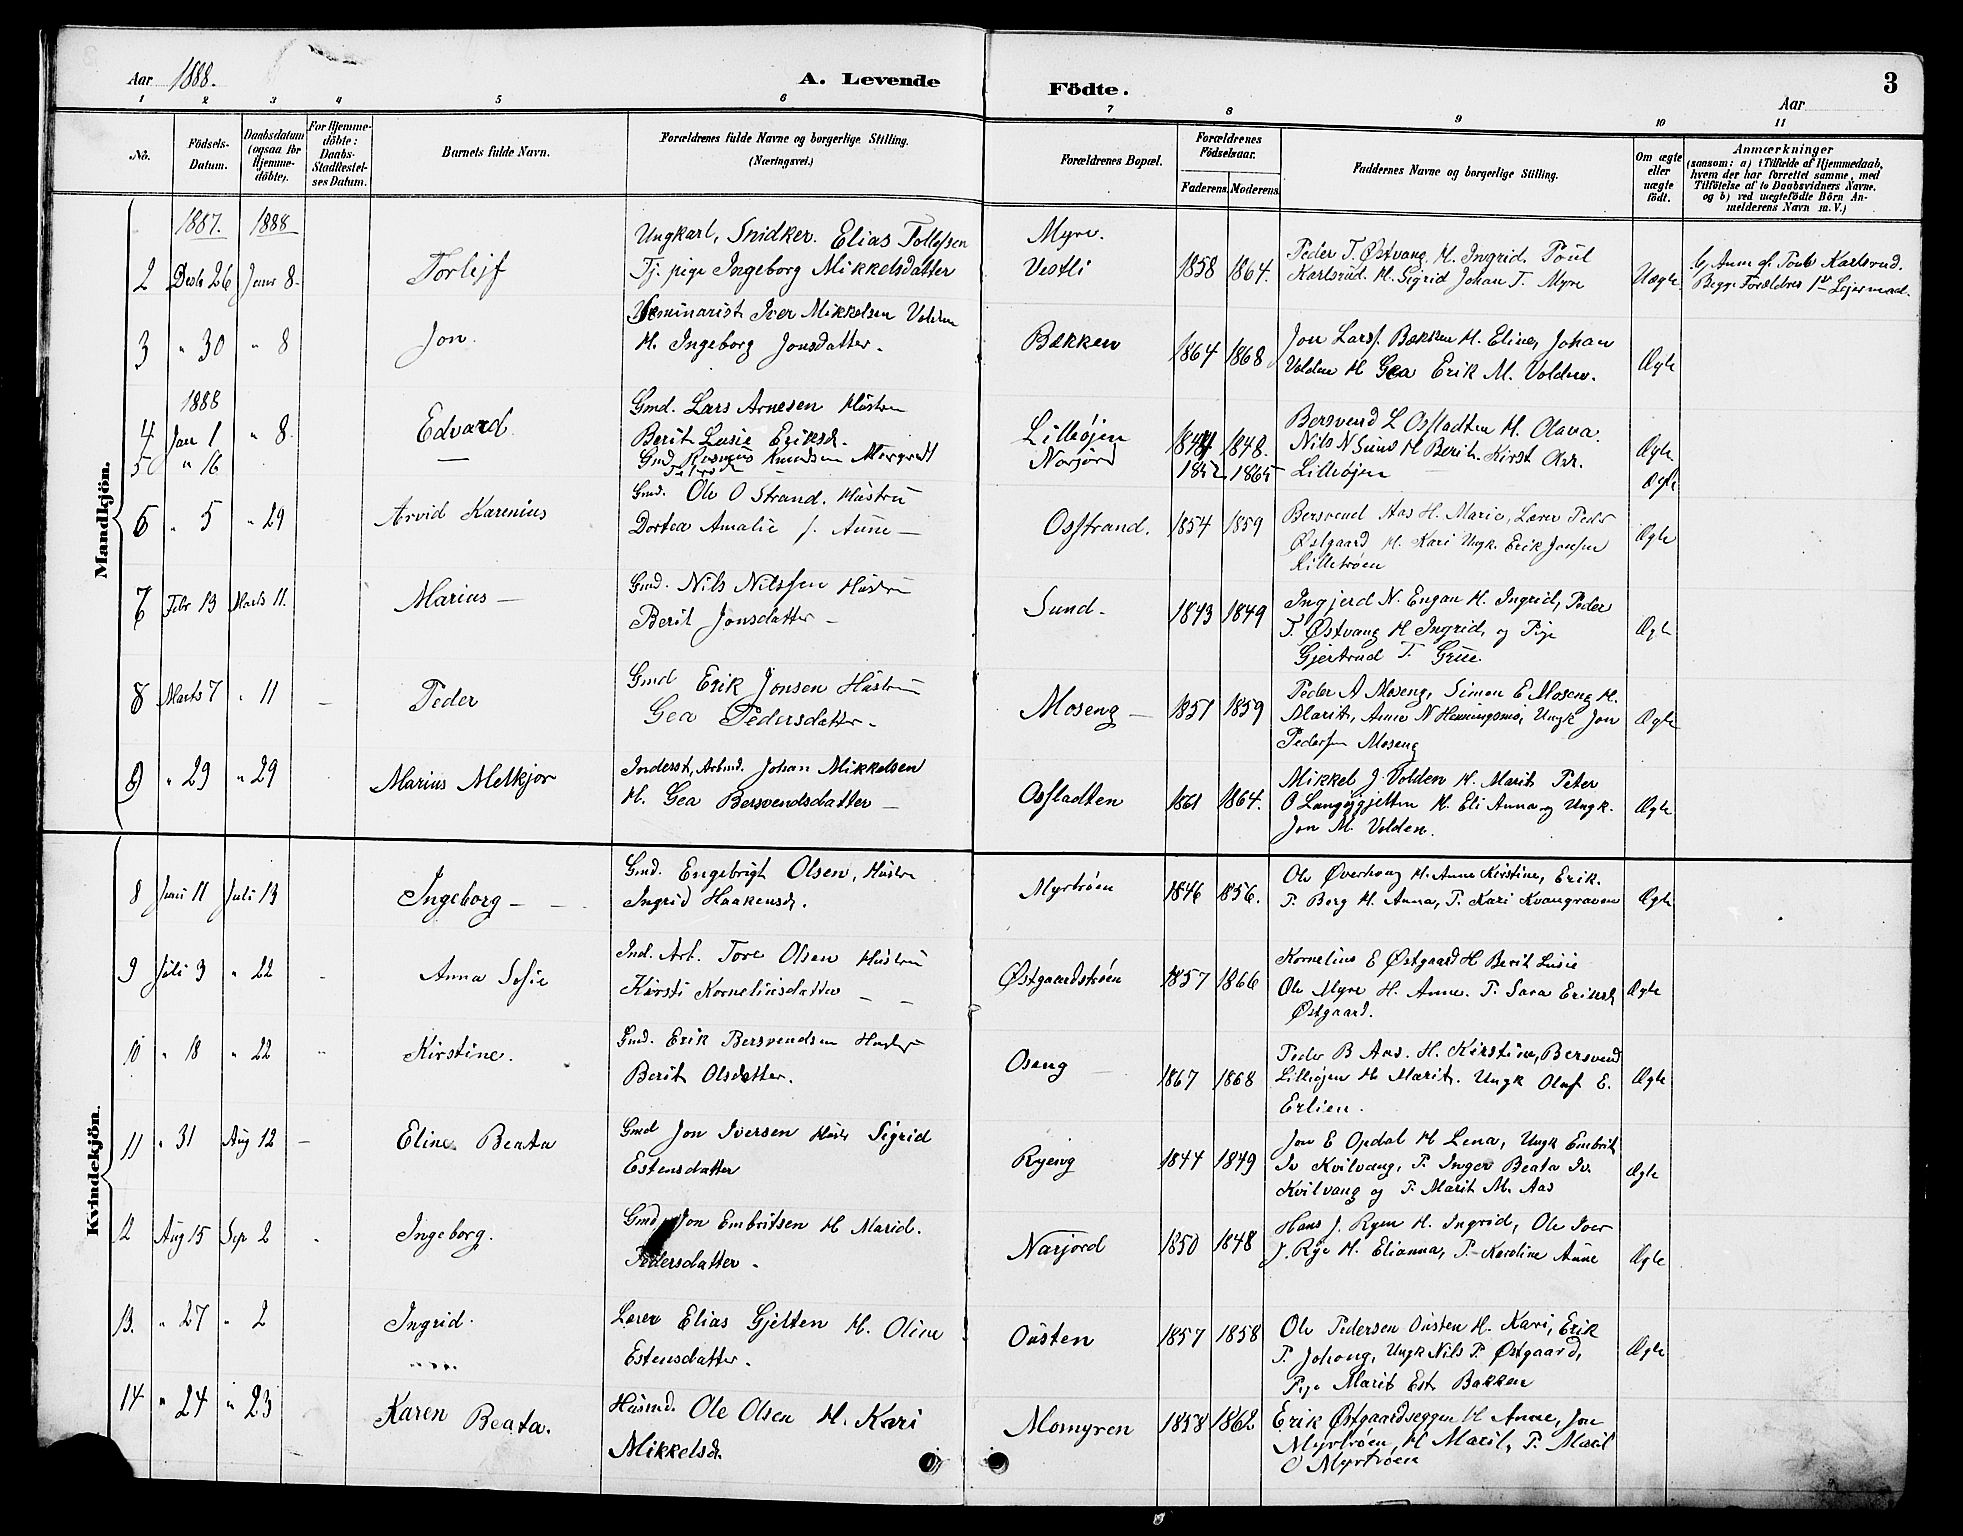 Aar 1888. A. Levende Födte. 3
Aar
1 2 3 4 5 6 7 8 9 10 11
No. Födsels-Datum. Daabsdatum (ogsaa for Hjemmedöbte). For Hjemmedöbte: Daabs-Stadfæstelses Datum. Barnets fulde Navn. Forældrenes fulde Navne og borgerlige Stilling. (Næringsvei.) Forældrenes Bopæl. Forældrenes Födselsaar. Faderens. Moderens. Faddernes Navne og borgerlige Stilling. Om ægte eller uægte födt. Anmærkninger (saasom: a) i Tilfælde af Hjemmedaab, hvem der har forrettet samme, med Tilföielse af to Daabsvidners Navne. og b) ved uægtefödte Börn Anmelderens Navn m. V.)
Mandkjön.
1887. 1888
Ungkarl, Snidker. Elias Tollefsen Myre.
2 Desb 26 Janr 8. Torlejf Tj. pige Ingeborg Mikkelsdatter Vestli 1858 1864. Peder T. Østvang H. Ingrid. Poul
Karlsrud. H. Sigrid Johan T. Myre Uægte
Begge Forældres 1ste Lejermaal.
3 " 30 " 8 Jon. Seminarist Iver Mikkelsen Volden
H. Ingeborg Jonsdatter. Bakken 1864 1868 Jon Larsf. Bakken H. Eline, Johan
Volden H Gea Erik M. Volden. Ægte
1888
4 Jan 1 " 8. Edvard Gmd. Lars Arnesen Hustru
Berit Lusie Eriksd. Lilleøjen 1844 1848. Bersvend L Osfladten H. Olava.
Nils N Sund H Berit. Kirst Olsd.
Lilleøjen Ægte
5 " 16 Gmd Rasmus Knudsen Margredt Narjord 1865 Ægte
6 " 5 " 29 Arvid Karenius Gmd. Ole O Strand. Hustru
Dortea Amalie f. Aune Osstrand. 1854 1859 Bersvend Aas H. Marie, Lærer Peder
Østgaard H. Kari Ungk. Erik Jonsen
Lilletrøen Ægte
7 Febr 13 Marts 11. Marius Gmd. Nils Nilssen Hustru
Berit Jonsdatter Sund. 1843 1849 Ingjerd N. Engan H. Ingrid, Peder
T. Østvang H Ingrid, og Pige
Gjertrud T. Grue. Ægte
8 Marts 7 " 11 Peder Gmd Erik Jonsen Hustru
Gea Pedersdatter Moseng 1851 1859 Peder A Moseng, Simen E Moseng H.
Marit, Anne N Henningsmo, Ungk Jon
Pedersen Moseng Ægte
9 " 29 " 29 Marius Melkjor Inderst, Arbmd. Johan Mikkelsen
H. Gea Bersvendsdatter Osfladten 1861 1864. Mikkel J. Volden H. Marit Peter
O Langøgjelten H. Eli Anna og Ungk.
Jon M. Volden. Ægte
Kvindekjön.
8 Juni 11 Juli 13 Ingeborg Gmd. Engebrigt Olsen, Hustru
Ingrid Haakensd. Myrtrøen 1846 1856. Ole Øverhaug H. Anne Kirstine, Erik.
P. Berg H. Anna, P. Kari Kvangraven Ægte
9 Juli 3 " 22 Anna Sofie Ind. Arb. Tore Olsen Hustru
Kirsti Kornelinsdatter Østgaardstrøen 1857 1866 Kornelius E Østgaard H Berit Lusie
Ole Myre H. Anne. P. Sara Eriksd
Østgaard. Ægte
10 " 18 " 22 Kirstine. Gmd. Erik Bersvendsen Hustru
Berit Olsdatter. Oseng 1867 1868 Peder B Aas. H. Kirstine, Bersvend
Lilleøjen H. Marit. Ungk Oluf E.
Erlien. Ægte
11 " 31 Aug 12 Eline Beata Gmd Jon Iversen Hust Sigrid
Estensdatter Ryeng 1844 1849 Jon E Opdal H Lena, Ungk Embrit
Iv Kvilvang, P. Inger Beata Iv.
Kvilvang og P. Marit M. Aas Ægte
12 Aug 15 Sep 2 Ingeborg. Gmd Jon Embritsen H Marid.
Pedersdatter Narjord 1850 1848 Hans J. Ryen H. Ingrid, Ole Iver
J. Rye H. Elianna, P. Karoline Aune Ægte
13. " 27 " 2 Ingrid. Lærer Elias Gjelten H. Oline
Estensdatter. Ousten 1857 1858 Ole Pedersen Ousten H. Kari, Erik
P. Johaug, Ungk Nils P. Østgaard,
Pige Marit Est. Bakken Ægte
14 " 24 " 23 Karen Beata. Husmd. Ole Olsen H. Kari
Mikkelsd. Momyren 1858 1862 Erik Østgaardseggen H Anne, Jon
Myrtrøen, H Marit, P. Marit
O Myrtrøen